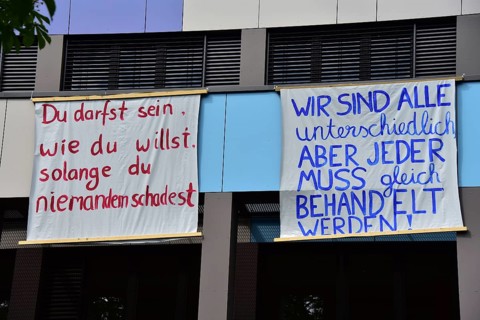 Du darfst sein,
wie du willst.
solange du
niemandem schadest
WIR SIND ALLE
unterschiedlich
ABER JEDER
MUSS gleich
BEHANDELT
WERDEN!